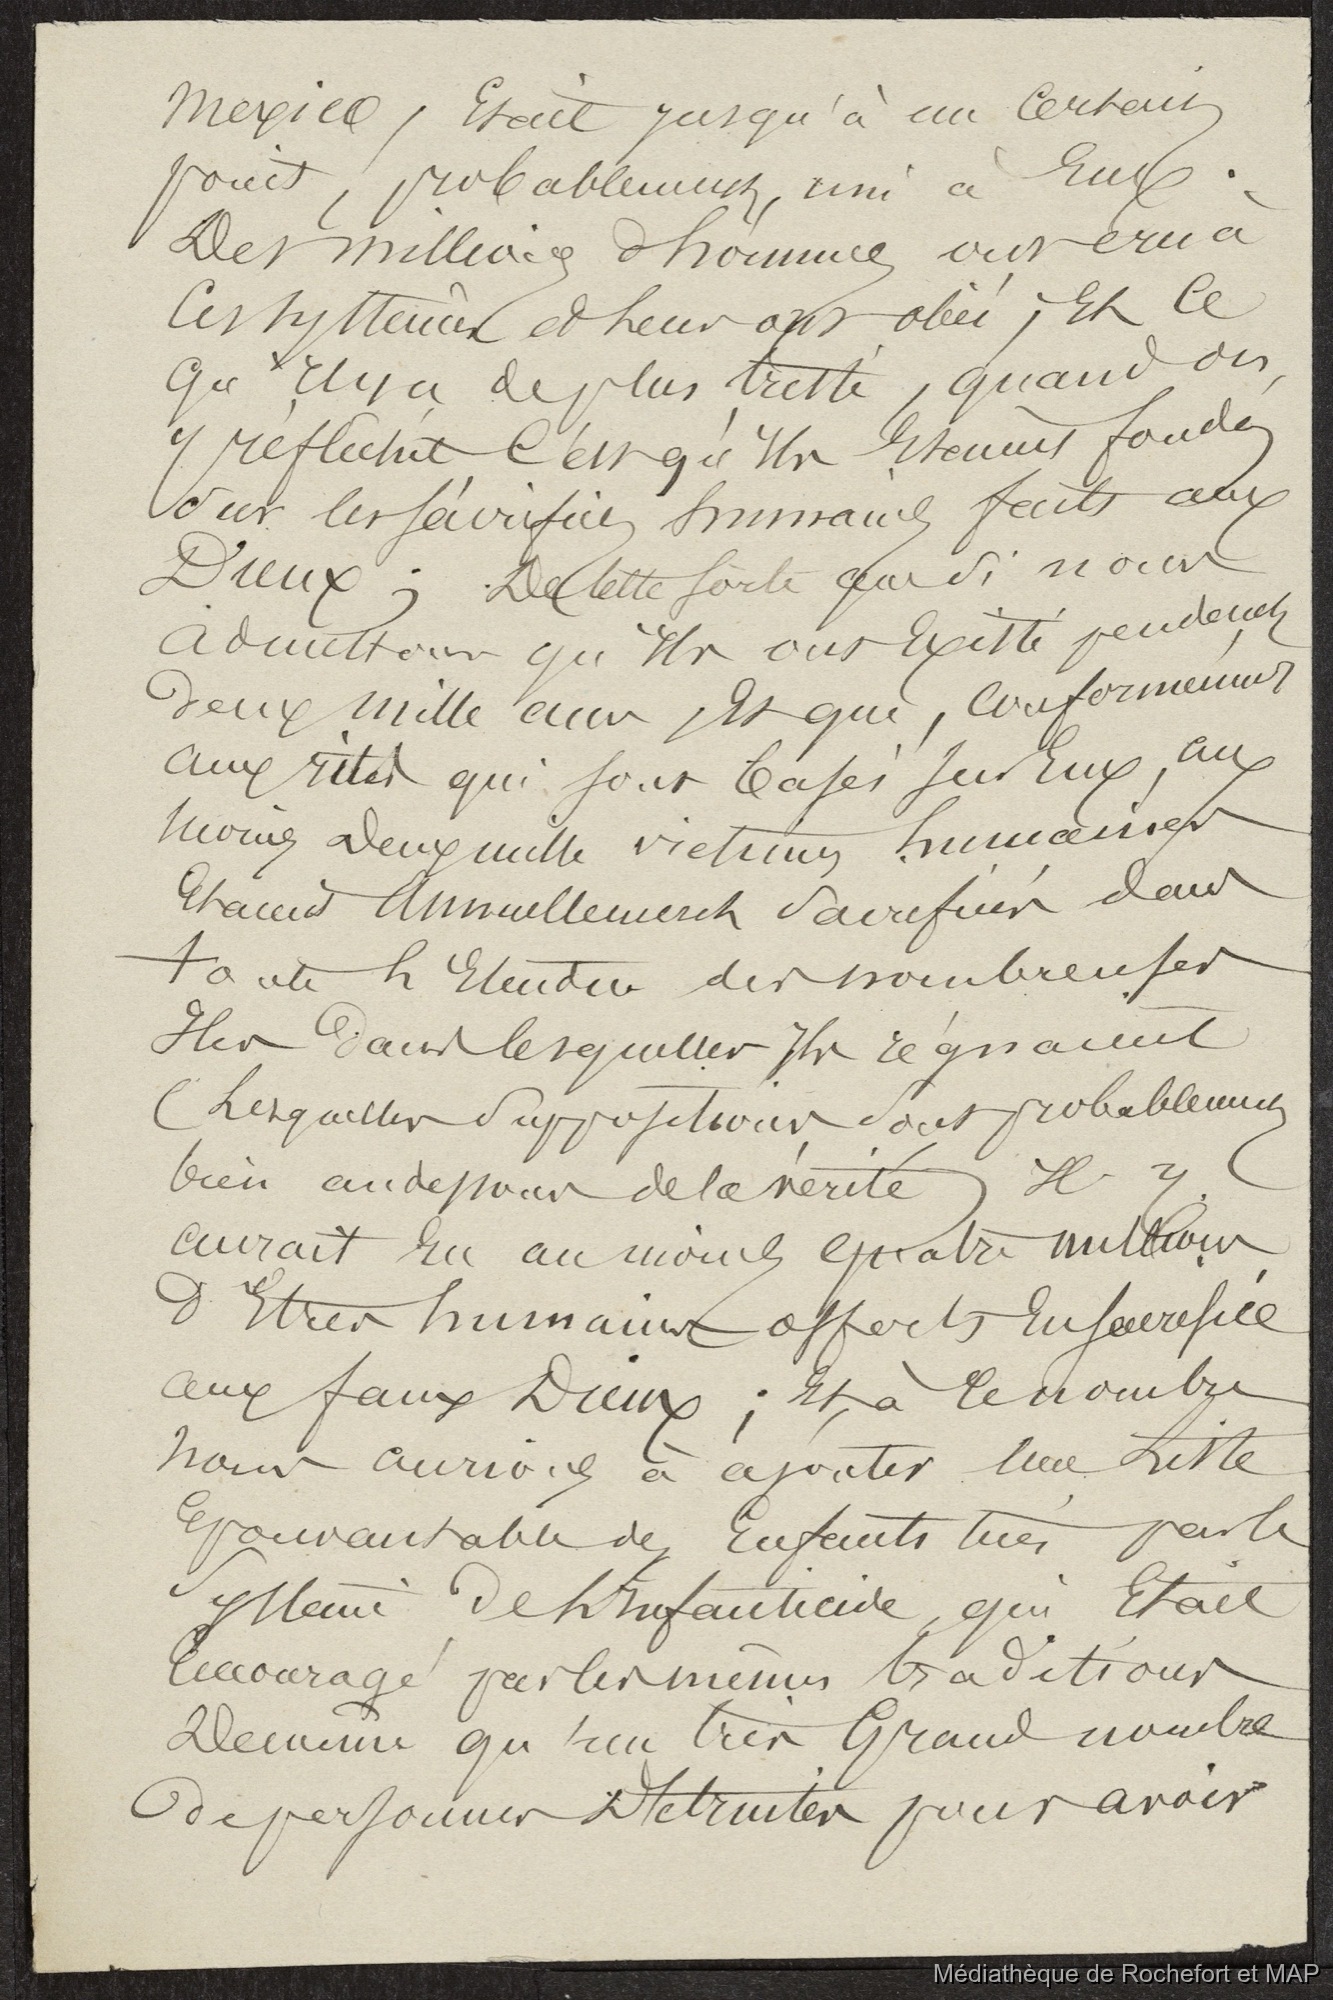 Mexico, Etait jusqu'à un Certain
point, probablement, uni à Eux.
Des millions d'hommes ont cru à
Ces systèmes et leur ont obéi ; Et Ce
qu'Il y a de plus triste, quand on
y réfléchit C'est qu'Ils Etaient fondés
sur les sacrifices humains faits aux
Dieux ; De cette sorte que si nous
admettons qu'Ils ont Existé pendant
deux mille ans, Et que, Conformément
aux rites qui sont basés sur Eux, au
moins Deux mille victimes humaines
Etaient Annuellement Sacrifiées dans
toute l'Etendue des nombreuses
Iles Dans lesquelles Ils régnaient
(Lesquelles suppositions sont probablement
bien au dessous de la vérité) Il y
aurait Eu au moins quatre millions
d'Etres humains offerts En sacrifice
aux faux Dieux ; Et, à Ce nombre
nous aurions à ajouter une Liste
Epouvantable des Enfants tués par le
Système De l'Infanticide, qui Etait
Encouragé par les mêmes traditions
De même qu'un très Grand nombre
de personnes Détruites pour avoir
Médiathèque de Rochefort et MAP